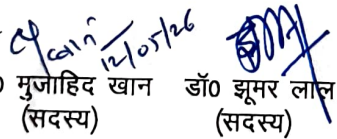 12/05/26
0 मुजाहिद खान डॉ0 झूमर लाल
(सदस्य) (सदस्य)